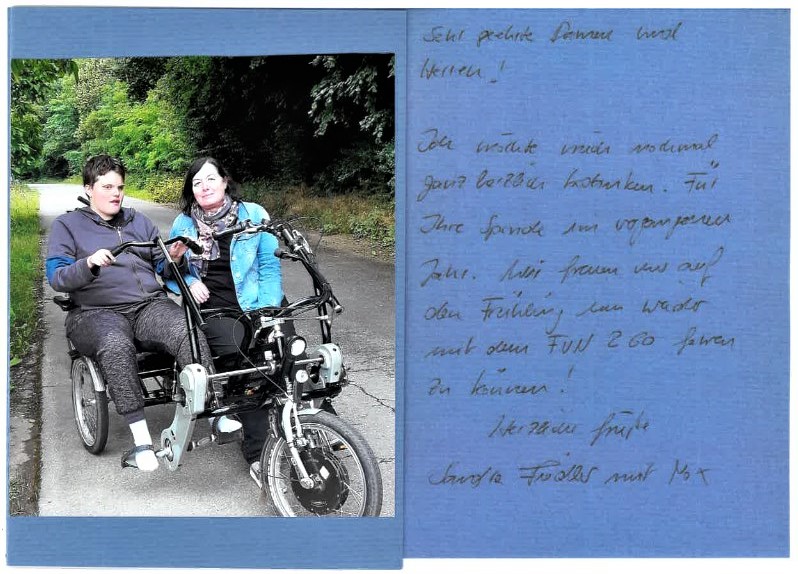 Sehr geehrte Damen und
Herren!
Ich möchte mich nochmal
ganz herzlich bedanken. Für
Ihre Spende im vergangenen
Jahr. Wir freuen uns auf
den Frühling um wieder
mit dem FUN 2 GO fahren
zu können!
Herzliche Grüße
Sandra Fiedler mit Max